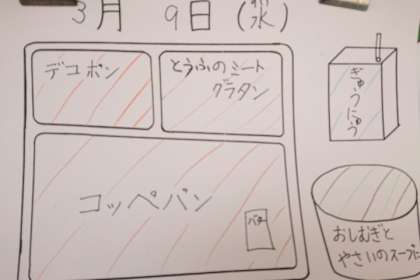 3月 9日 (水)
デコポン
とうふのミート
グラタン
ぎゅうにゅう
コッペパン
バター
おしむぎと
やさいのスープに